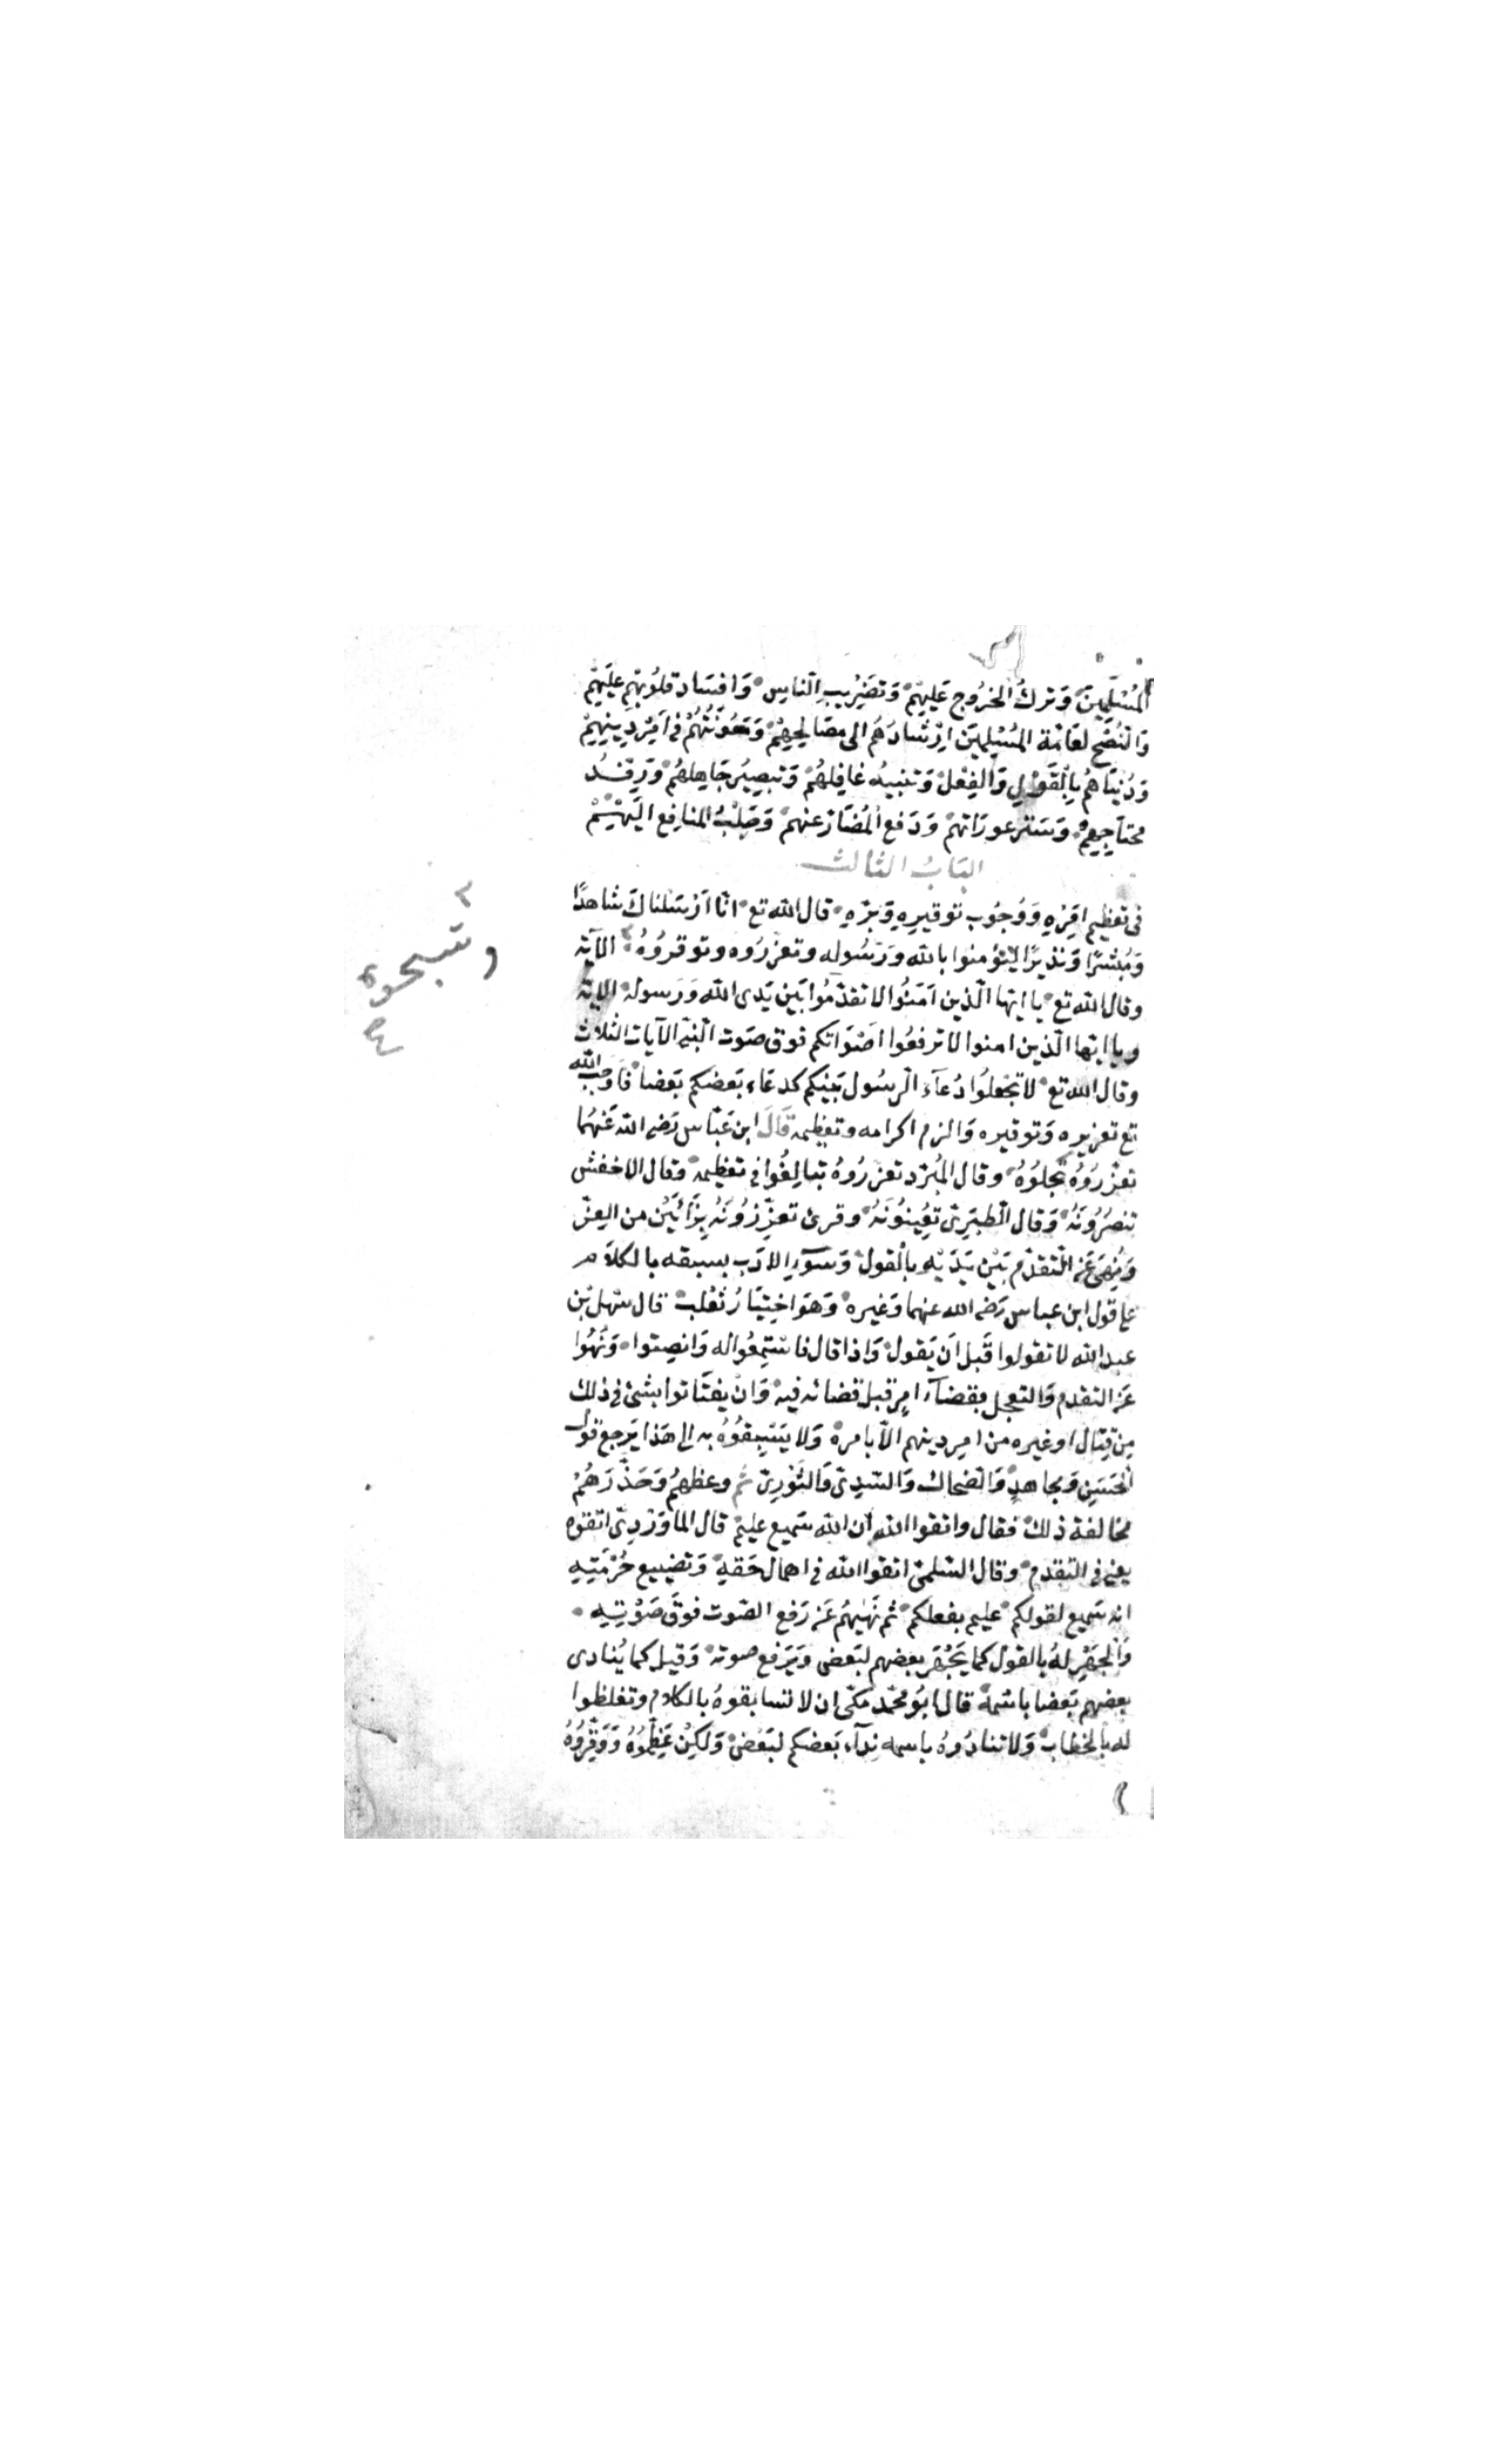 المُسْلِمِينَ وَتركُ الخرُوج عَليْهمْ وَتضْرِيب النّاسِ وَافسَاد قلُوبهِم عليَهْم
وَالنُصْح لعَامّة المُسْلِمِيَن اِرْشادُهُم الى مصَالِحِهِمْ وَمَعُونَتُهُمْ في اَمْرِ دِينِهِمْ
وَدُنيَاهُم بِالقَوْلِ وَالفِعْل وَتنبيهُ غافِلهُمْ وَتبصِيْر جَاهِلهُمْ وَرِفْدُ
محتاجِهِمْ وَسَتْر عورَاتهمْ وَدَفع المُضَارّ عنهمْ وَجَلْبُ المنَافِع اليَهْمْ
البَابُ الثالث
في تعظيم امَرِهِ وَوُجُوب توقيرِهِ وَبرّهِ قال الله تع انّا اَرْسَلناكَ شاهدًا
وَمُبشرًا وَنذيرًا لتِؤمنوا بالله وَرَسُوله وتعزّرُوه وتوقّرُوُهُ الآية
وتسبحوه
صح
وقال الله تع يا ايها الّذين اَمَنُوا لا تقدّمُوا بَيَن يَدى الله وَرَسوله الاية
ويا ايها الّذين امنوا لا ترفعُوا اصْوَاتكم فوق صَوت النّبيّ الآيات الثلاث
وقال الله تع لا تجْعلوُا دُعآءَ الرسُول بَينكم كدعَاء بَعضكم بَعضا فاَوجَبَ الله
تع تعزيره وَتوقيره وَالزم اكرامه وتعظيمه قَالَ ابن عَبّاس رَضي الله عَنهُما
تعزّرُوُه تُجلوُهُ وقال المُبّرد تعزرُوهُ تبالِغُوا في تعظيمه وقال الاخفش
تنصُرُونَهُ وَقال الطبَرِىّ تُعِينوُنَهُ وقرئ تعزّزُونَهُ بِزَائَيْن من العِزّ
وَنُهِىَ عَن التقدّم بَيْن يَدَيْهِ بالْقول وَسوَءِ الادَب بسبقه بالكلاَم
على قول ابن عباس رَضي الله عنهما وَغيره وَهوَ اختِيَارُ ثعْلب قال سَهل بْن
عبدالله لا تقولوا قَبل اَن يَقول وَاِذا قال فاسْتمِعُوا له وَانصِتوا وَنهُوا
عَن التقدم وَالتعجل بقضاَء امرٍ قبل قضائه فيه وَانْ يفتَاتوا بشئ في ذلك
مِن قِتال او غيره من امر دينهم الّا بامره وَلا يَسَبِقوُهُ به الى هَذا يَرجع قول
الحَسَن وَمجاهدٍ وَالضحاك وَالسّدىّ وَالثوْرىّ ثم وعظهُم وَحَذّرَهُمْ
مخالفة ذلك فقال واتقوا الله ان الله سَميع عليم قال الماوَرْدِىّ اتقوه
يعني في التقدم وقال السّلمىّ اتقوا الله في اهمال حَقهِ وَتضييع حُرْمَتِهِ
انه سَميع لقولكم عليم بفعلكم ثم نَهَيهُم عَن رَفع الصّوت فوقَ صَوْتِهِ
وَالجَهْر لهُ بالقول كما يَجْهَر بعضهم لبَعض وَيَرفع صوته وَقيل كما يُنادى
بعضهم بَعضا باسْمه قال ابُو محمّد مكّى ان لا تسابقوهُ بالكلام وتغلظوا
له بالخطاب وَلا تنادُوهُ باسمه نِدآء بَعضكم لبَعْض وَلَكِن عَظِّمُوهُ وَوَقِّرُوُهُ